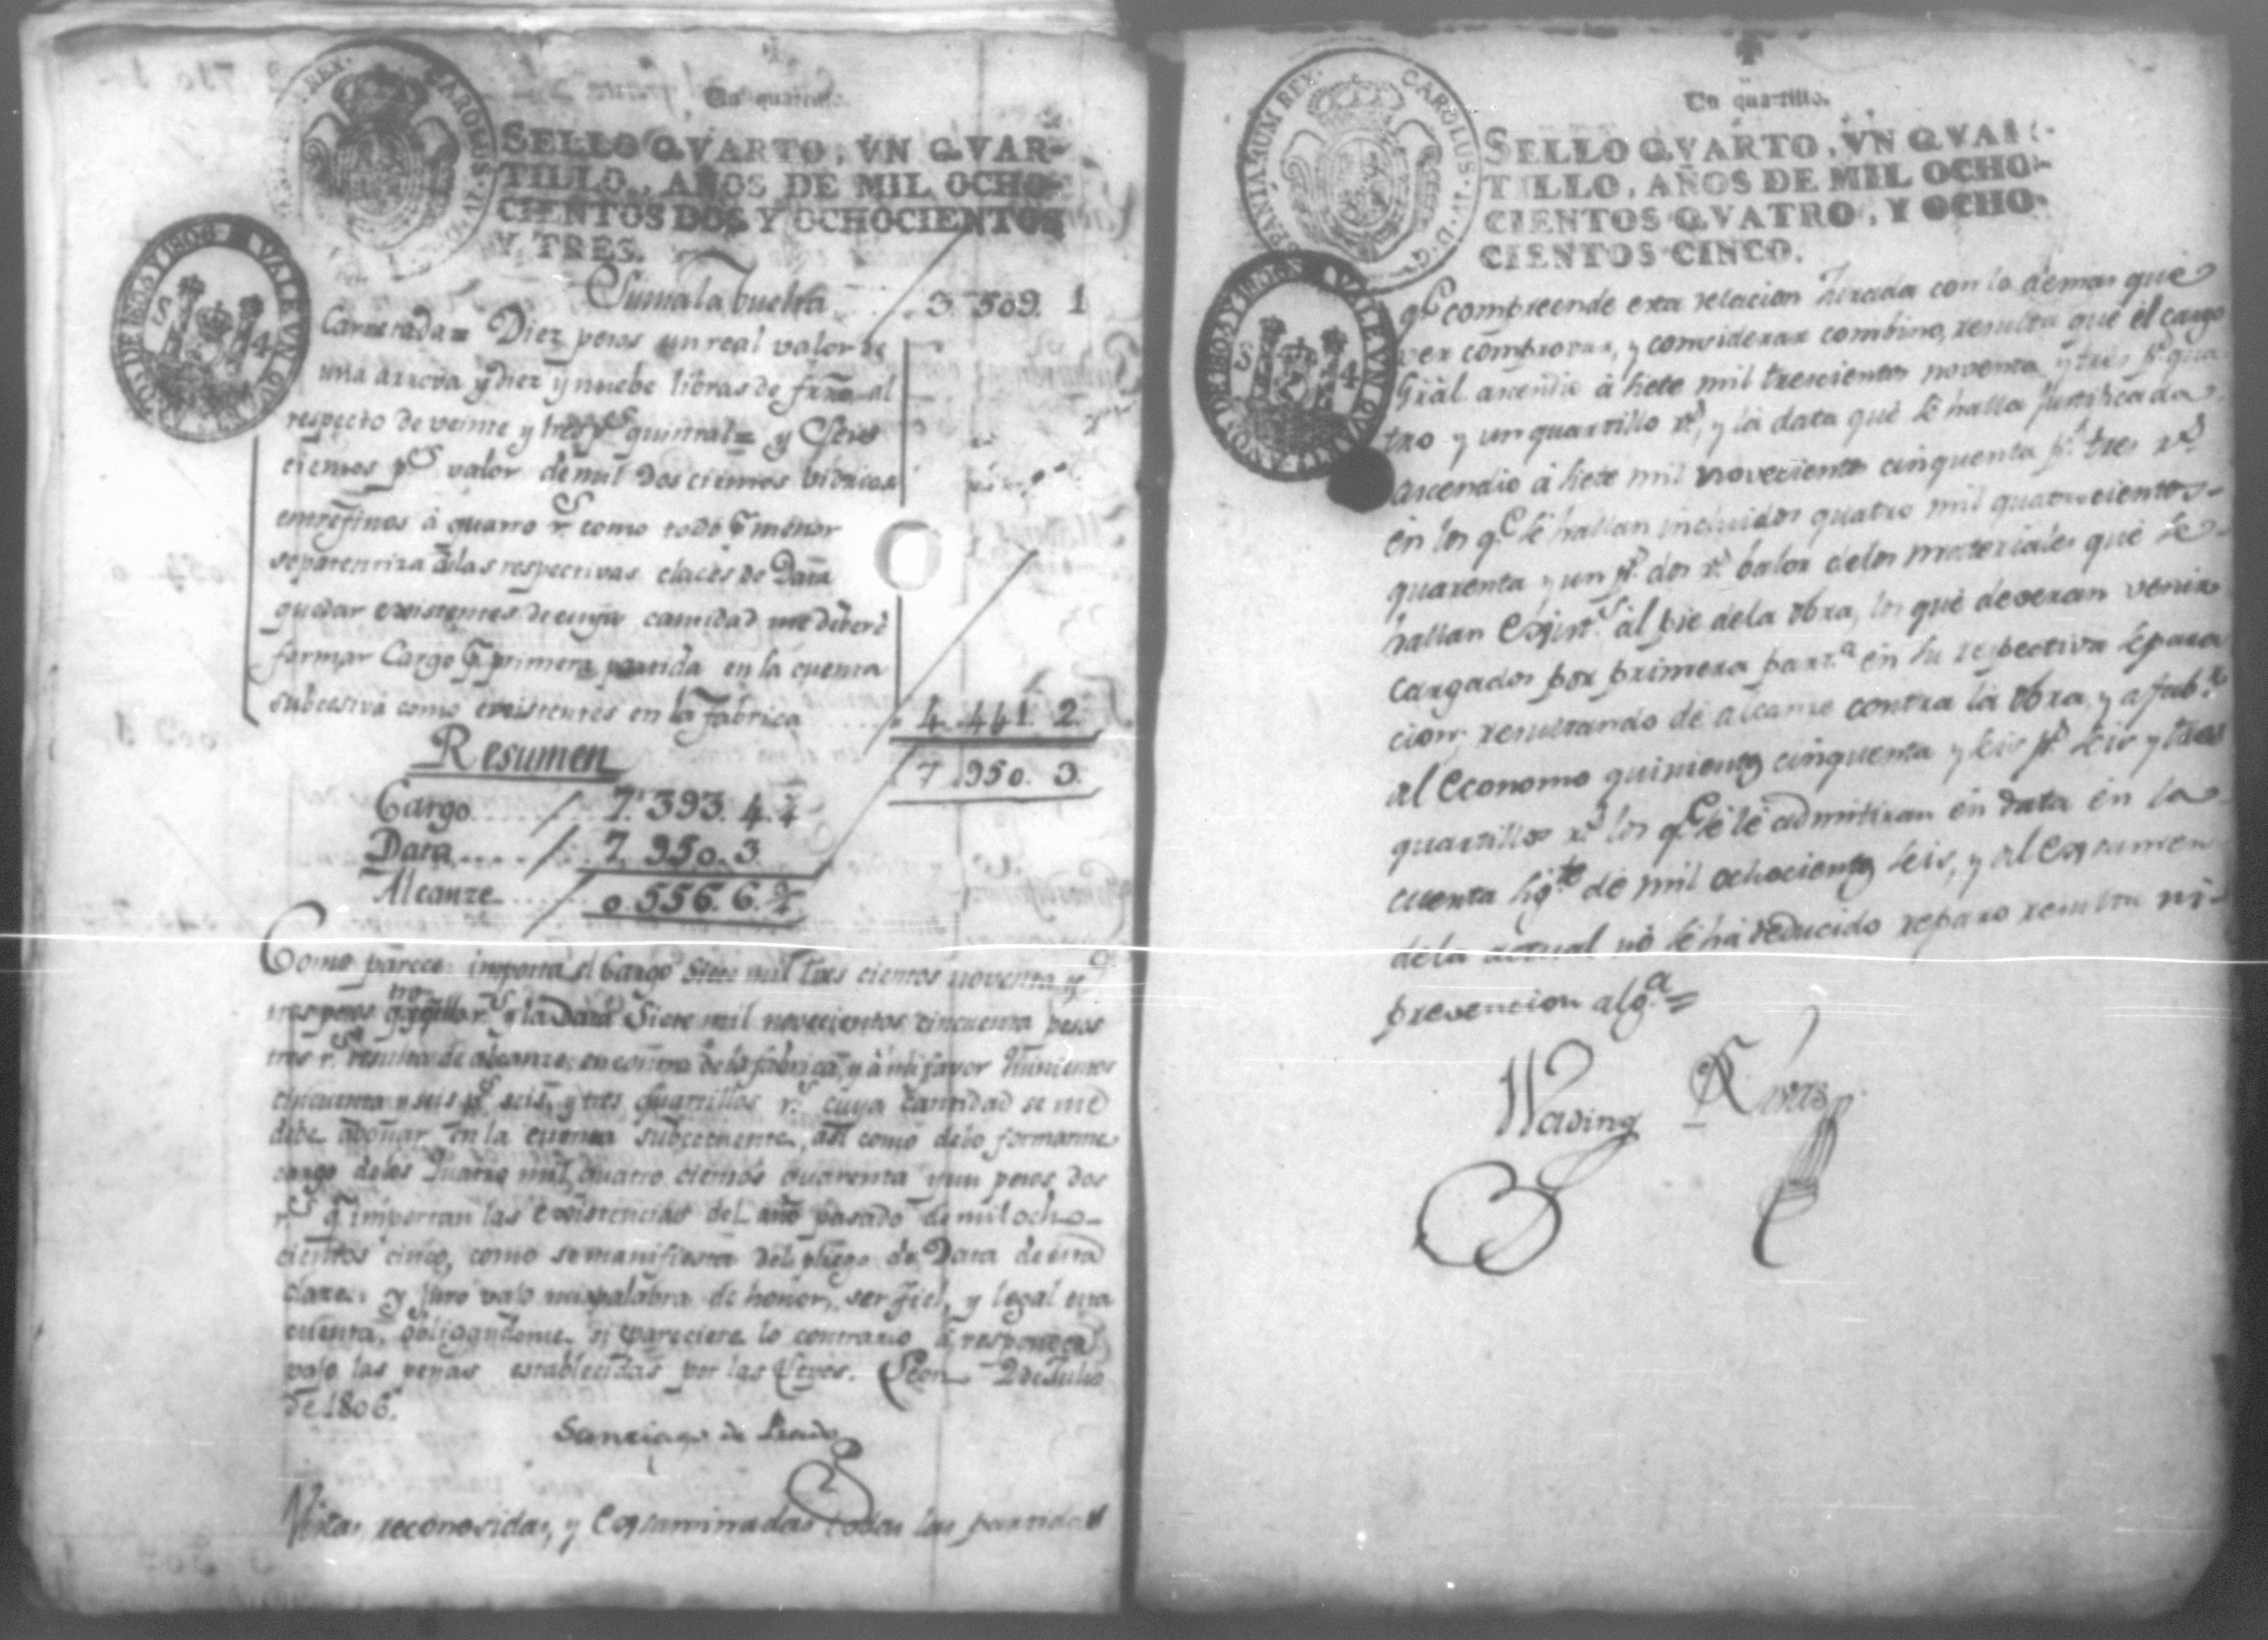 Un quartillo.
SELLO QVARTO, VN QVAR-
TILLO, AÑOS DE MIL OCHO-
CIENTOS DOS Y OCHOCIENTOS
Y TRES.
CAROLUS IV D G HISPANIARUM REX
VALE UN QUARTILLO AÑOS DE 1804 Y 1805
S 4
Suma la buelta 3 509. 1
Diez pesos un real valor de
una arrova y diez y nuebe libras de al
respecto de veinte y tres p.s quintal= y Seis
cientos p.s valor de mil dos cientos vidrios
entrefinos à quatro r.s como todo p menor
se patentiza à las respectivas claces de Data
quedar existentes de cuya cantidad me deberè
formar Cargo p primera partida en la cuenta
subcesiva como existentes en la fabrica 4 441. 2
Resumen 7 950. 3.
Cargo 7. 393. 4. 1/4
Data 7 950. 3
Alcanze 0. 556. 6. 3/4
Como parece importa el Cargo Siete mil tres cientos noventa y
tres pesos y la Data Siete mil novecientos cincuenta pesos
tres r.s resulta de alcanze en contra de la fabrica, y à mi favor Quinientos
cincuenta y seis p.s seis, y tres quartillos r.s cuya cantidad se me
debe abonar en la cuenta subcecuente, asi como debo formarme
cargo de los Quatro mil quatro cientos quarenta y un pesos dos
r.s q importan las existencias del año pasado de mil ocho-
cientos cinco, como se manifiesta del pliego de Data de esta
claze. y juro vajo mi palabra de honor, ser fiel, y legal esta
cuenta, obligandome si pareciere lo contrario à responder
vajo las penas establecidas por las Leyes. Leon 2 de Julio
de 1806.
Santiago de
Vistas, reconosidas, y Examinadas todas las partidas
Un quartillo.
SELLO QVARTO, VN QVAR-
TILLO, AÑOS DE MIL OCHO-
CIENTOS QVATRO, Y OCHO-
CIENTOS CINCO.
CAROLUS IV D G HISPANIARUM REX
VALE UN QUARTILLO AÑOS DE 1806 Y
S 4
q.e compreende esta relacion Jurada con lo demas que
ver comprovar, y considerar combino, resulta que el cargo
Gràl. asendio à siete mil trescientos noventa y tres p.s qua
tro y un quartillo r.s, y la data què se halla justificada
ascendio à siete mil novecientos cinquenta p.s tres r.s
en los q.e se hallan incluidos quatro mil quatrocientos-
quarenta y un p.s dos r.s balor de los materiales què se
hallan Exist.s al pie de la obra, los què deveran venir
cargados por primera part.a en su respectiva separa
cion; resultando de alcanse contra la obra, y a fab.r
al Economo quinientos cinquenta y seis p.s seis y tres
quartillos r.s los q.e se le admitiran en data en la
cuenta sig.te de mil ochocientos seis, y al Examen
de la actual nò se hà deducido reparo resulta ni-
prevencion alg.a =
Wading Rivas